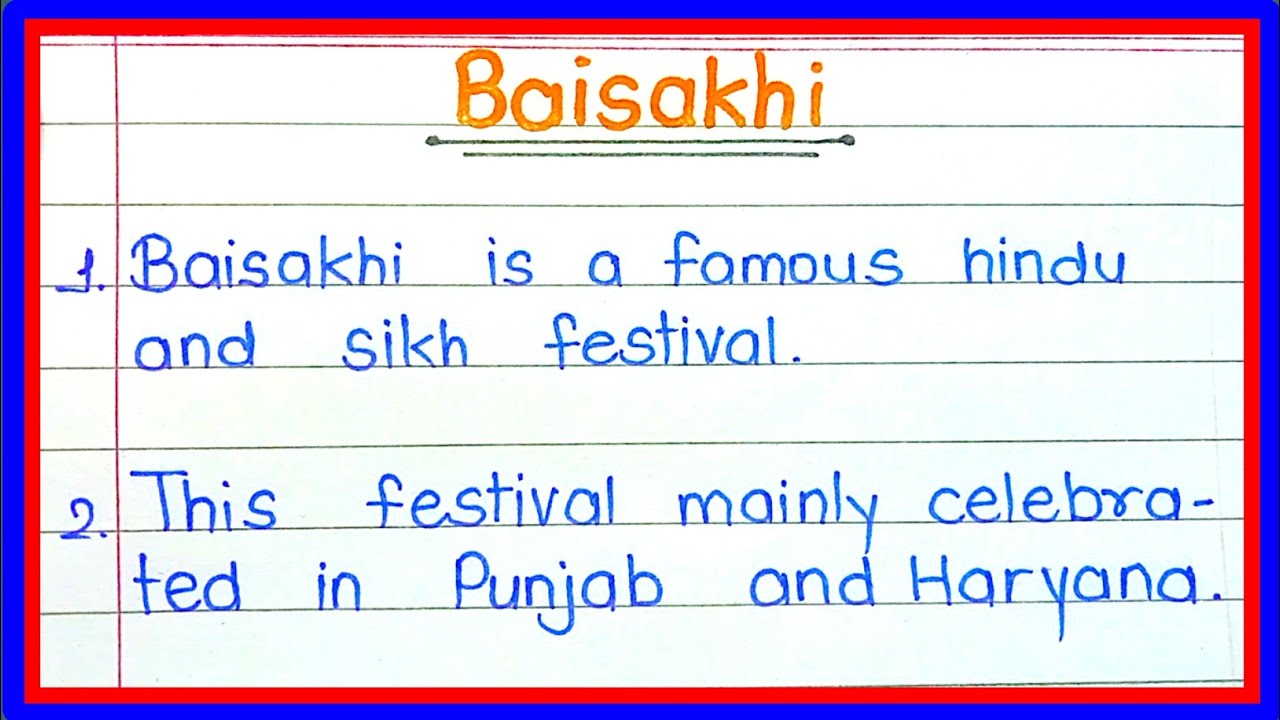 Baisakhi
1. Baisakhi is a famous hindu
and sikh festival.
2. This festival mainly celebra-
ted in Punjab and Haryana.